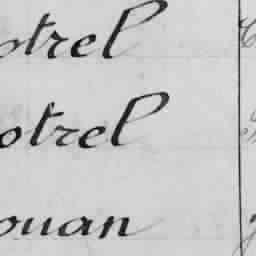 otrel
otrel
ouan